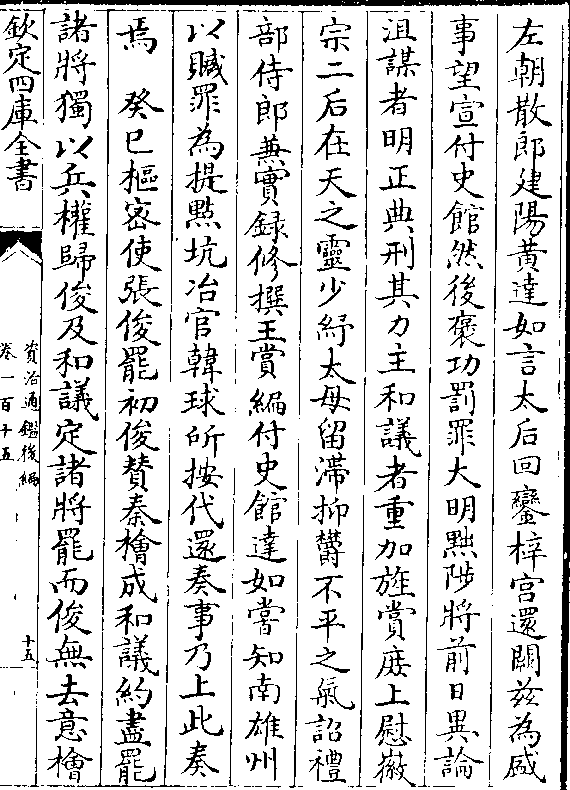 左朝散郎建陽黄達如言太后回鑾梓宫還闕兹為盛
事望宣付史館然後褒功罰罪大明黜陟將前日異論
沮謀者明正典刑其力主和議者重加旌賞庶上慰徽
宗二后在天之靈少紓太母留滯抑欝不平之氣詔禮
部侍郎兼實録修撰王賞編付史館達如嘗知南雄州
以贓罪為提㸃坑冶官韓球所按代還奏事乃上此奏
焉　癸巳樞密使張俊罷初俊賛秦檜成和議約盡罷
諸將獨以兵權歸俊及和議定諸將罷而俊無去意檜
欽定四庫全書
資治通鑑後編
卷一百十五
十五